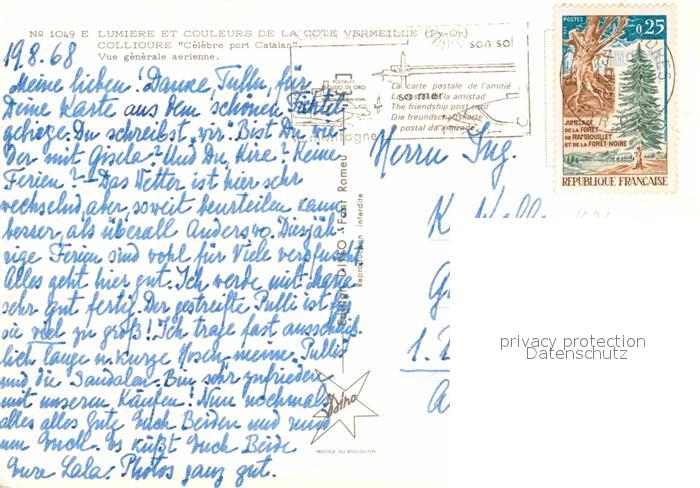 No 1049 E LUMIERE ET COULEURS DE LA COTE VERMEILLE (Py-Or)
COLLIOURE "Célèbre port Catalan"
Vue générale aerienne.
19.8.68
Meine lieben! Danke, Tullu, für
Deine Karte aus dem schönen Fichtel-
gebirge. Du schreibst "wir". Bist Du wie-
der mit Gisela? Und Du, Kire? Keine
Ferien? - Das Wetter ist hier sehr
wechselnd, aber, soweit beurteilen kann
besser als überall Anderswo. Diesjäh-
rige Ferien sind wohl für Viele verpfuscht.
Alles geht hier gut. Ich werde mit
sehr gut fertig. Der gestreifte Pulli ist
sie viel zu groß! Ich trage fast ausschließ-
lich lange u. kurze Hosen, meine Pullis
und die Sandalen. Bin sehr zufrieden
mit unseren Käufen! Nun nochmals
alles alles Gute Euch Beiden und
um Euch. Es küßt Euch Beide
Eure Lala. Photos ganz gut.
Edition DINO - Font Romeu
Reproduction interdite
Dino
PRESTIGE DU ROUSSILLON
son sol
sa mer
montagne
La carte postale de l'amitié
La postal de la amistad
The friendship post card
Die freundschaftskarte
postal da amizade
POSTES
0,25
JUMELAGE
DE LA FORÊT
DE RAMBOUILLET
ET DE LA FORÊT-NOIRE
REPUBLIQUE FRANÇAISE
Herrn Ing.
K.
1.
privacy protection
Datenschutz